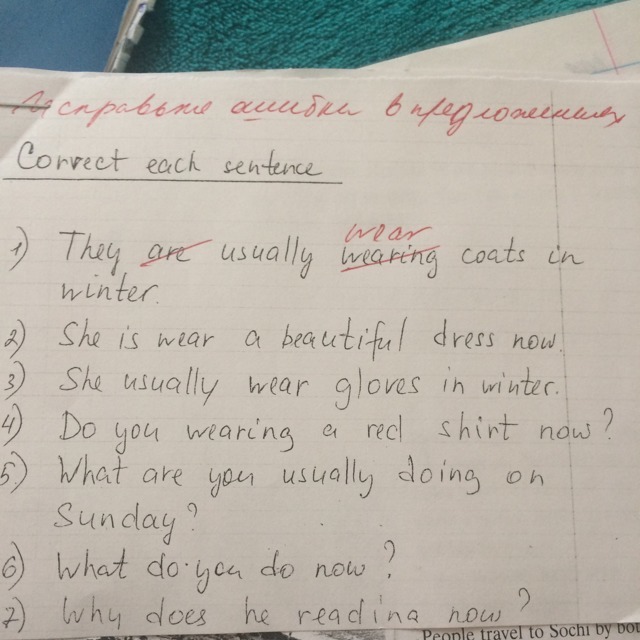 Исправьте ошибки в предложениях
Correct each sentence
wear
1) They are usually wearing coats in
winter.
2) She is wear a beautiful dress now.
3) She usually wear gloves in winter.
4) Do you wearing a red shirt now?
5) What are you usually doing on
Sunday?
6) What do you do now?
7) Why does he reading now?
People travel to Sochi by